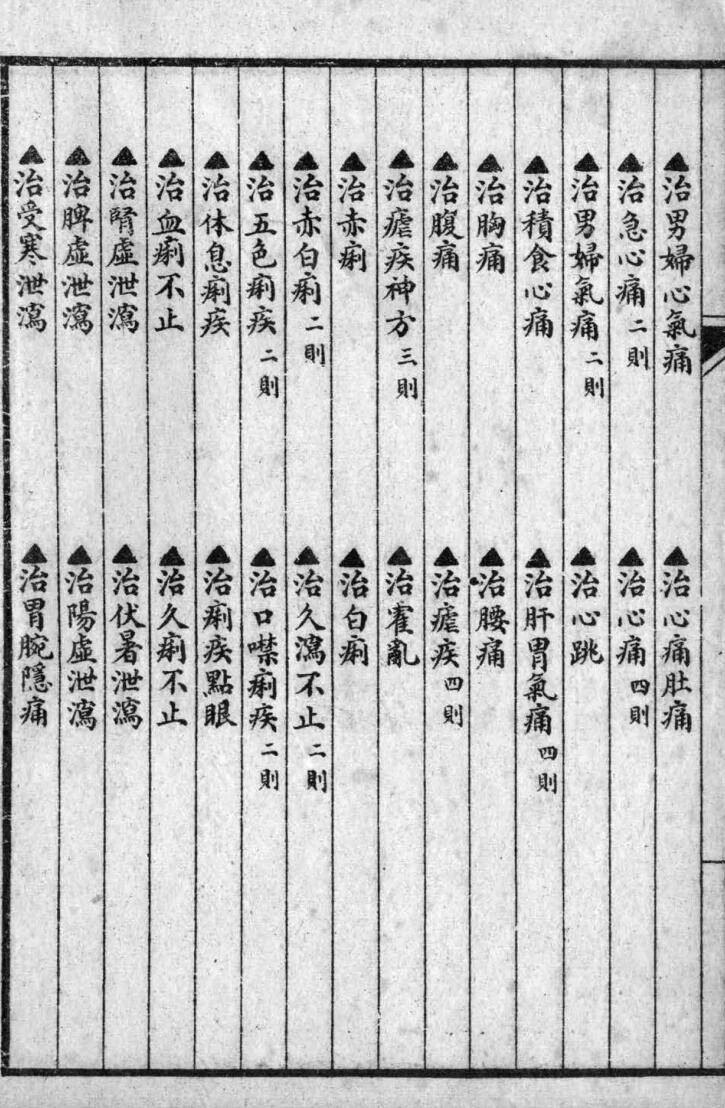 ▲治男婦心氣痛
▲治心痛肚痛
▲治急心痛二則
▲治心痛四則
▲治男婦氣痛二則
▲治心跳
▲治積食心痛
▲治肝胃氣痛四則
▲治胸痛
▲治腰痛
▲治腹痛
▲治瘧疾四則
▲治瘧疾神方三則
▲治霍亂
▲治赤痢
▲治白痢
▲治赤白痢二則
▲治久瀉不止二則
▲治五色痢疾二則
▲治口噤痢疾二則
▲治休息痢疾
▲治痢疾點眼
▲治血痢不止
▲治久痢不止
▲治腎虛泄瀉
▲治伏暑泄瀉
▲治脾虛泄瀉
▲治陽虛泄瀉
▲治受寒泄瀉
▲治胃脘隱痛